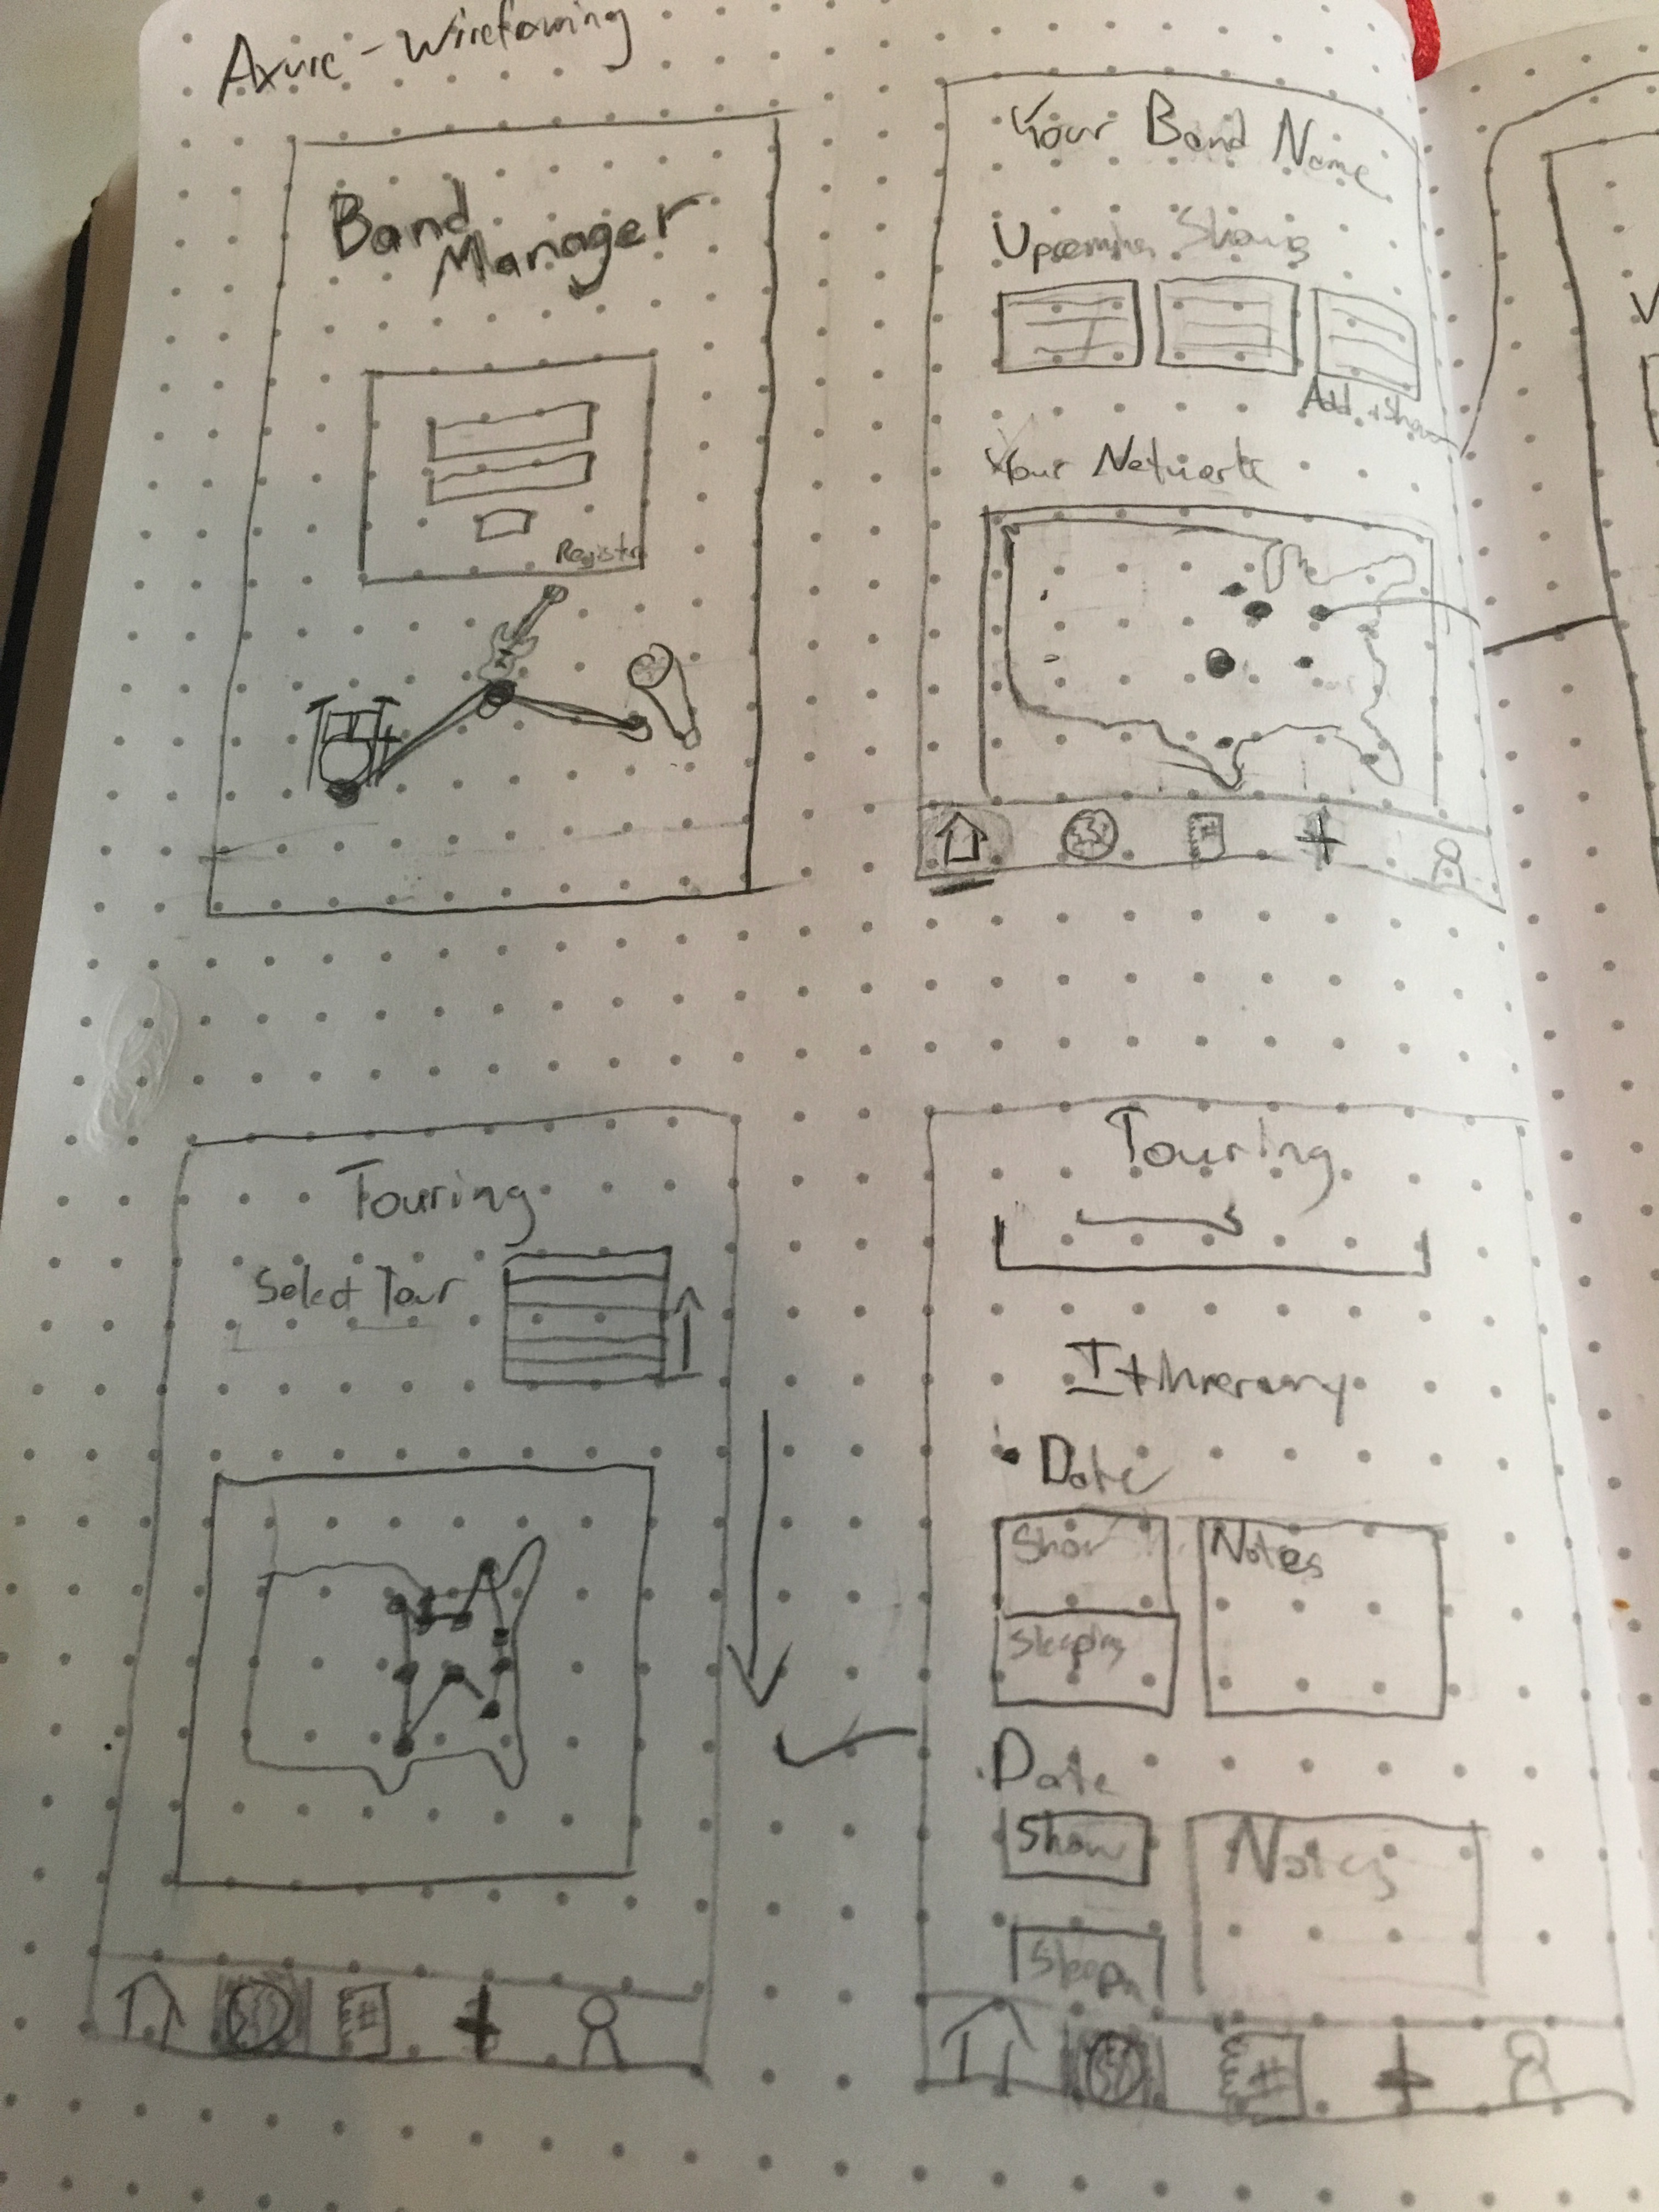 Axure - Wireframing
Band
Manager
Register
Your Band Name
Upcoming Shows
Add a Show
Your Network
Touring
Select Tour
Touring
Itinerary
Date
Show
Notes
Sleeping
Date
Show
Notes
Sleepn